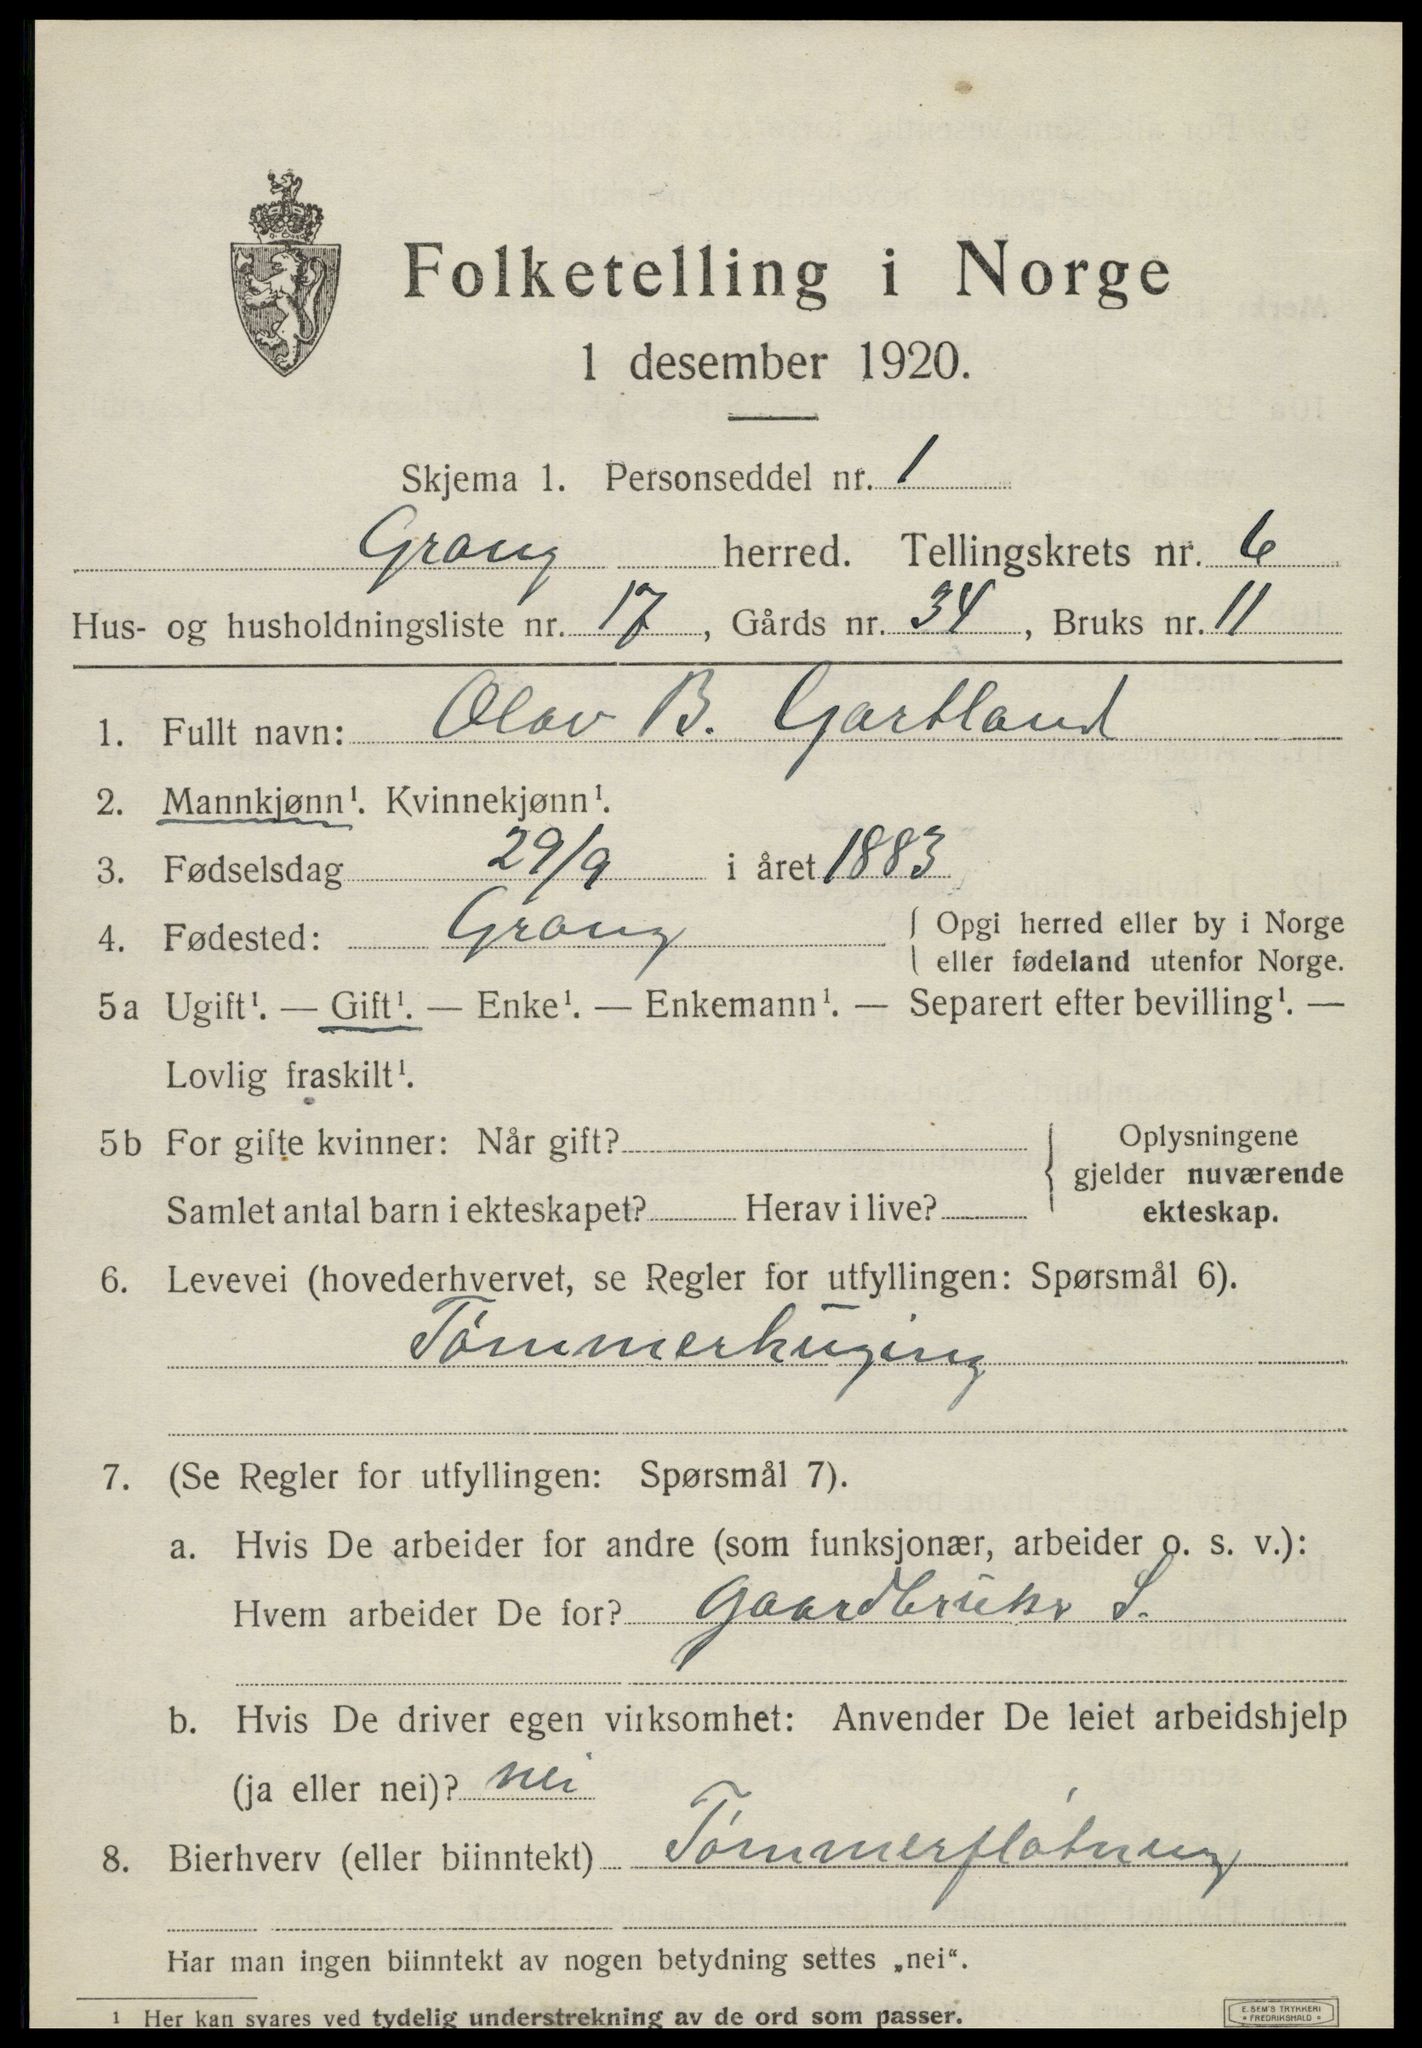 Folketelling i Norge
1 desember 1920.
Skjema 1. Personseddel nr. 1
Grong herred. Tellingskrets nr. 6
Hus- og husholdningsliste nr. 17, Gårds nr. 34, Bruks nr. 11
1. Fullt navn: Olav B. Gartland
2. Mannkjønn¹. Kvinnekjønn¹.
3. Fødselsdag 29/9 i året 1883
4. Fødested: Grong { Opgi herred eller by i Norge
eller fødeland utenfor Norge.
5a Ugift¹. — Gift¹. — Enke¹. — Enkemann¹. — Separert efter bevilling¹. —
Lovlig fraskilt¹.
5b For gifte kvinner: Når gift?
Samlet antal barn i ekteskapet? Herav i live?
Oplysningene
gjelder nuværende
ekteskap.
6. Levevei (hovederhvervet, se Regler for utfyllingen: Spørsmål 6).
Tømmerhuging
7. (Se Regler for utfyllingen: Spørsmål 7).
a. Hvis De arbeider for andre (som funksjonær, arbeider o. s. v.):
Hvem arbeider De for? Gaardbruker S.
b. Hvis De driver egen virksomhet: Anvender De leiet arbeidshjelp
(ja eller nei)? nei
8. Bierhverv (eller biinntekt) Tømmerfløtning
Har man ingen biinntekt av nogen betydning settes „nei“.
¹ Her kan svares ved tydelig understrekning av de ord som passer.
E. SEM'S TRYKKERI
* FREDRIKSHALD *